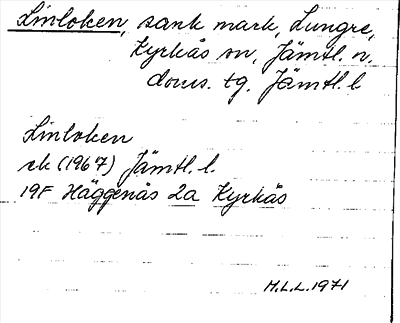 Linloken, sank mark, Lungre,
Kyrkås sn, Jämtl. n.
doms. tg. Jämtl. l
Linloken
ek (1967) Jämtl. l.
19F Häggenås 2a Kyrkås
H.L.L. 1971